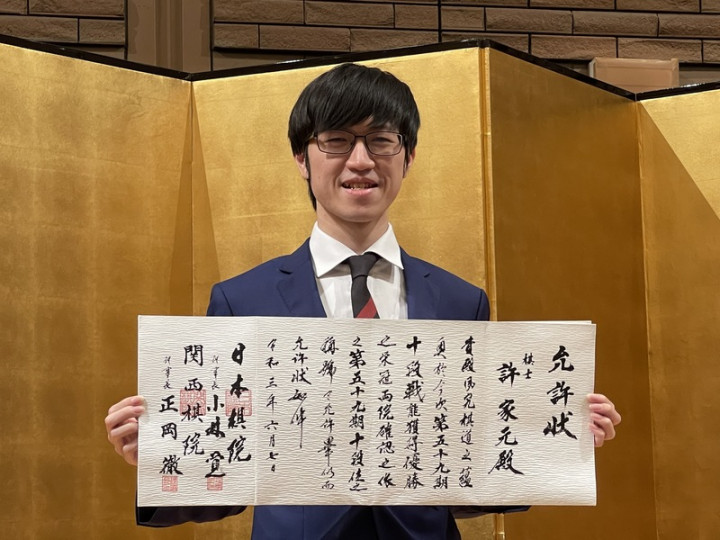 允許状
棋士
許家元殿
貴殿棋道之蘊
奥於今次第五十九期
十段戦能獲得優勝
之栄冠両院確認之依
之第五十九期十段位之
称号令允許畢仍而
允許状如件
令和三年六月七日
日本棋院
理事長 小林覚
関西棋院
理事長 正岡徹